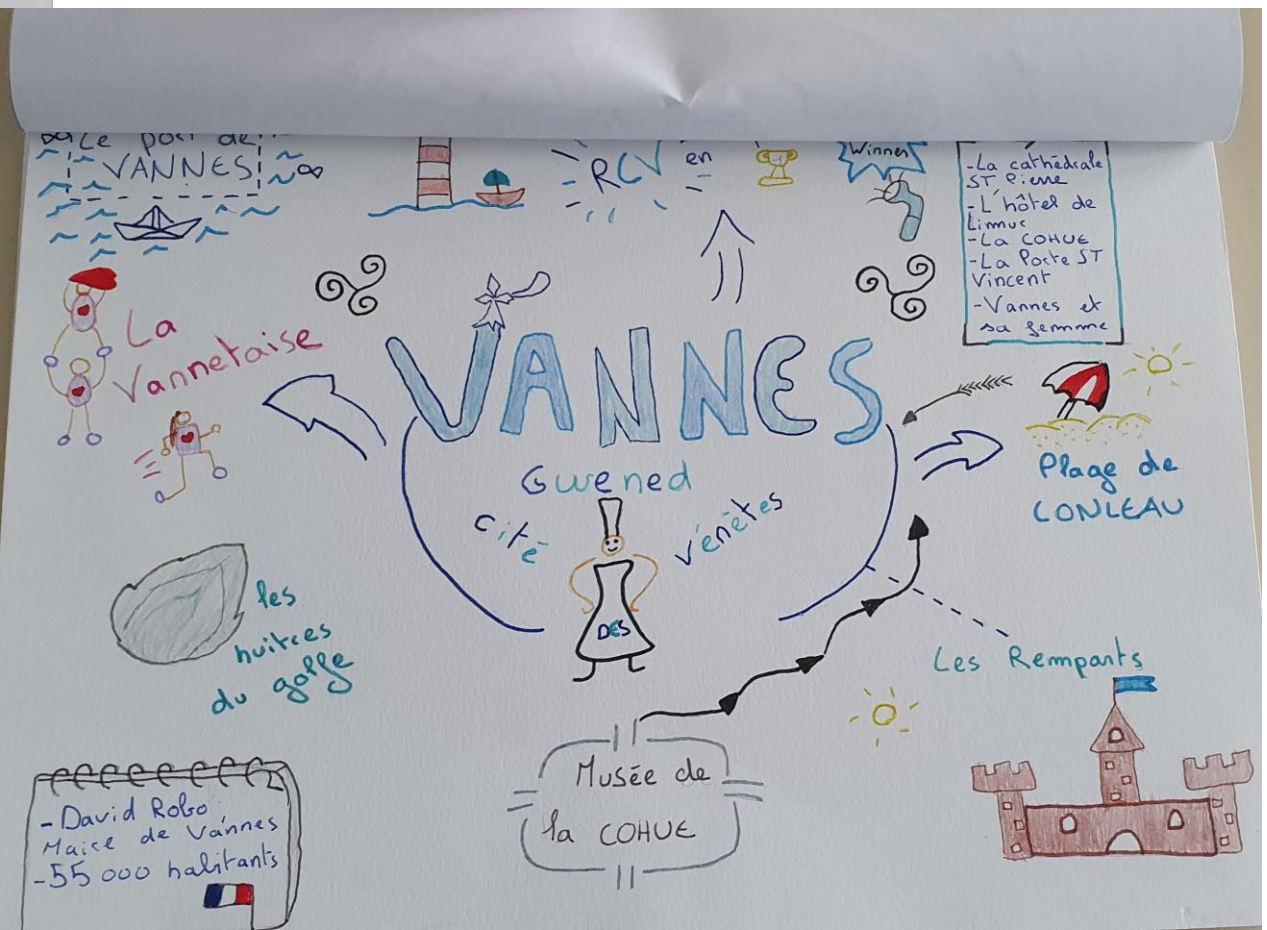 Le port de
VANNES
RCV en
1
Winner
-La cathédrale
ST Pierre
-L'hôtel de
Limuc
-La COHUE
-La Porte ST
Vincent
-Vannes et
sa femme
La
Vannetaise
VANNES
Gwened
cité
DES
vénètes
Plage de
CONLEAU
les
huitres
du golfe
Les Remparts
Musée de
la COHUE
-David Robo
Maire de Vannes
-55 000 habitants